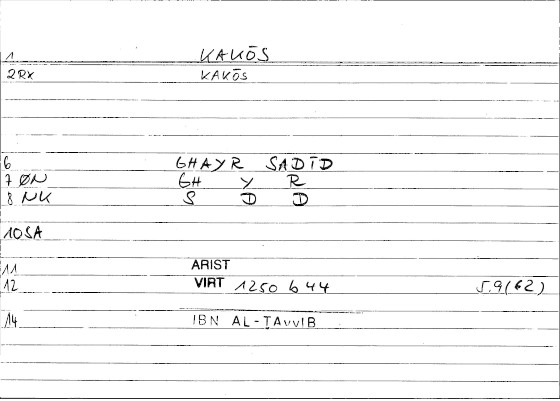 1 KAKŌS
2RX KAKŌS
6 GHAYR SADĪD
7 ØN GH Y R
8 NK S D D
10SA
11 ARIST
12 VIRT 1250 b 44 5.9(62)
14 IBN AL-ṬAYYIB